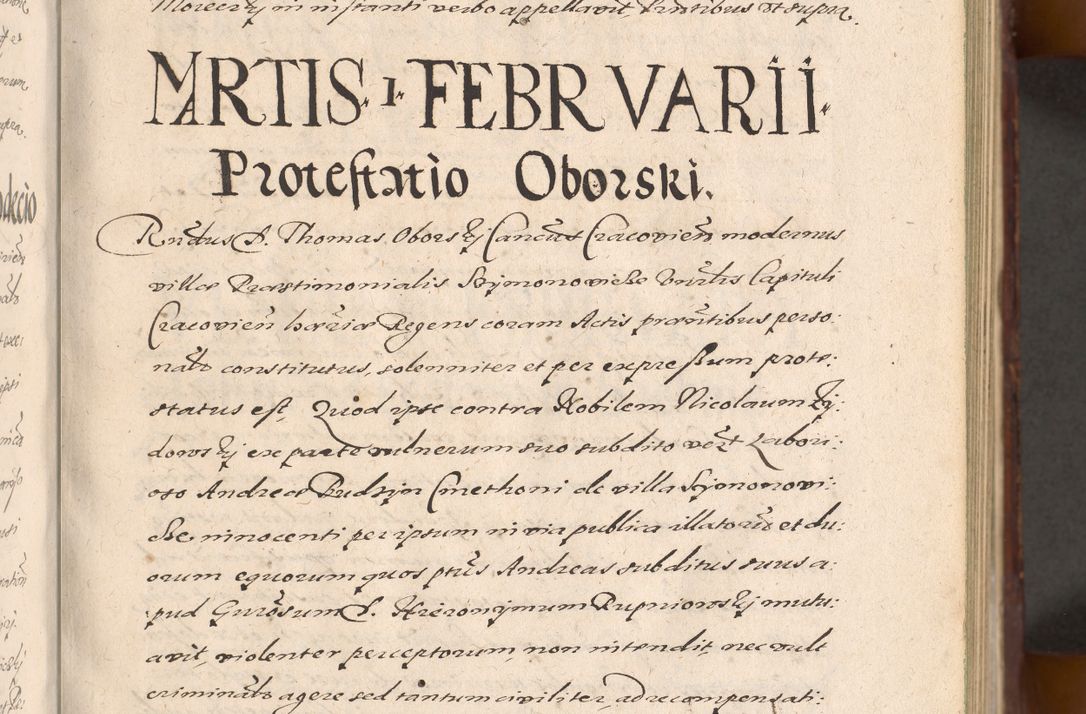 Moreczkÿ in instanti verbo appellavit Pntibus vt supra.
MARTIS · 1 · FEBRVARII ·
Protestatio Oborski.
Rndus D. Thomas Oborskÿ Cancus Cracovien̄ modernus
villæ Præstimonialis Szÿmonoviche Vnrlis Capituli
Cracovien̄ hæriæ Regens coram Actis prænntibus perso:
nalr constitutus, solenniter et per expressum prote:
status est, Quod ipse contra Nobilem Nicolaum Zÿ:
dowskÿ ex parte vulnerum suo subdito vert Labori:
oso Andreæ Rudzÿn Cmethoni de villa Sÿmonovi:
che innocenti per ipsum in via publica illatoru et du:
orum equorum quos ptus Andreas subditus suus a:
pud Gnrosum D. Hieronÿmum Rupniowskÿ mutu:
avit, violenter perceptorum, non intendit, nec vult
criminalr agere sed tantum civiliter, ad recompensati: